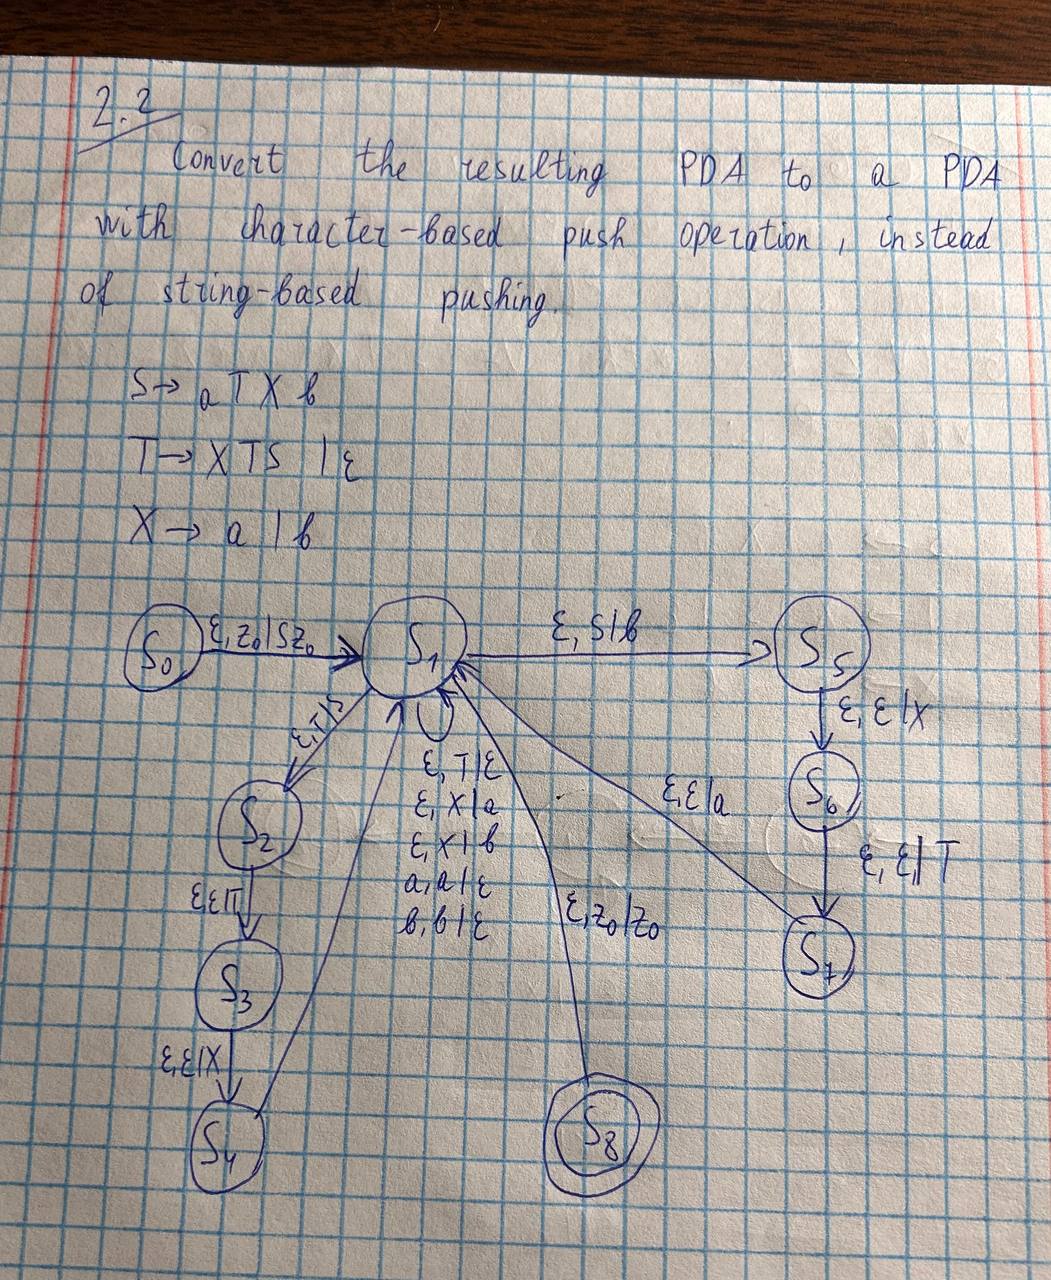 2.2
Convert the resulting PDA to a PDA
with character-based push operation, instead
of string-based pushing.
S→ aTXb
T→ XTS | ε
X→ a | b
S₀
ε, z₀ | Sz₀
S₁
ε, S | b
S₅
ε, T | S
ε, ε | X
S₂
ε, T | ε
ε, X | a
ε, X | b
a, a | ε
b, b | ε
ε, ε | a
S₆
ε, ε | T
ε, ε | T
ε, z₀ | z₀
S₃
S₇
ε, ε | X
S₄
S₈